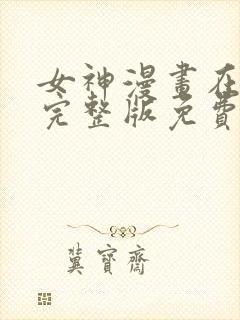 女神漫畫在
完整版免費
冀寶齋